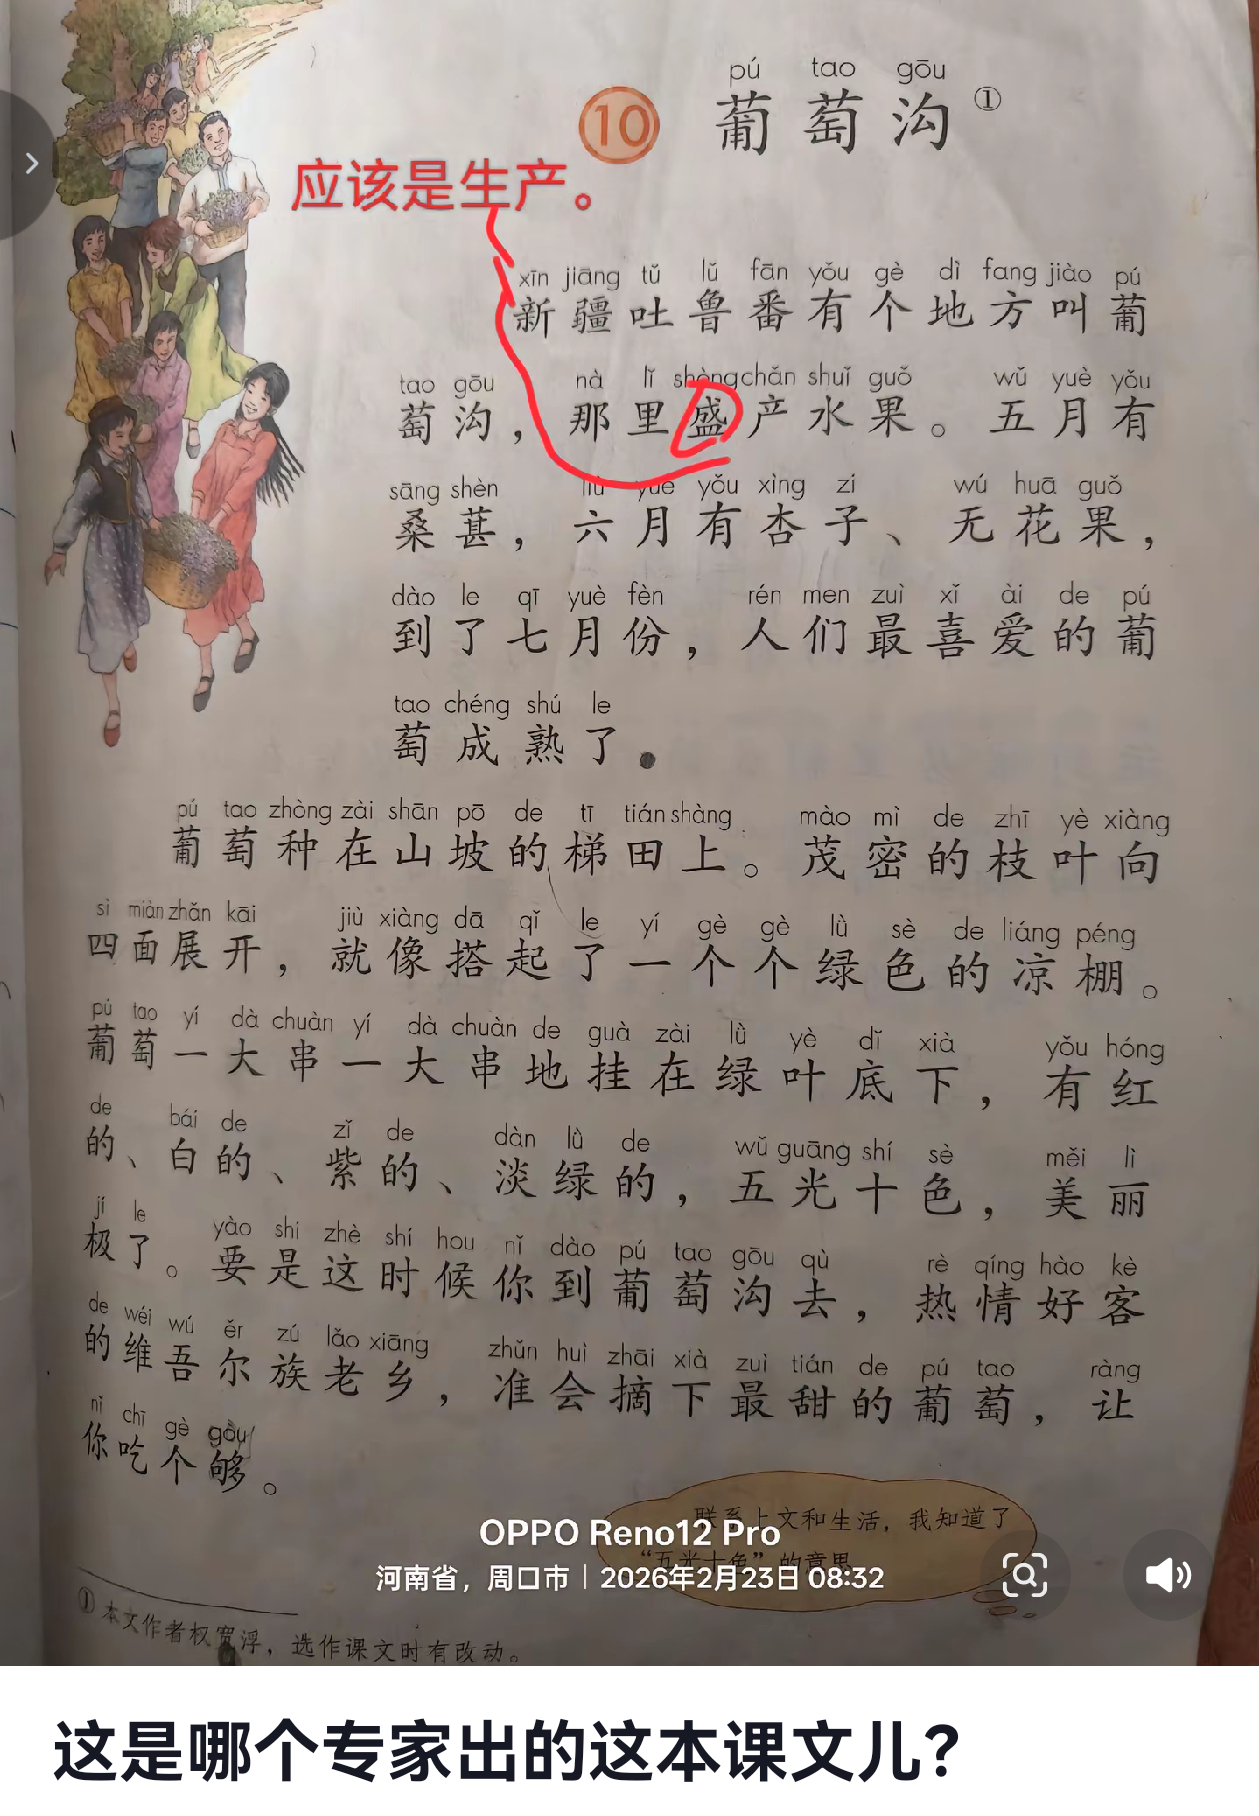 pú tao gōu
10 葡萄沟①
应该是生产。
xīn jiāng tǔ lǔ fān yǒu gè dì fang jiào pú
新疆吐鲁番有个地方叫葡
tao gōu nà lǐ shèng chǎn shuǐ guǒ wǔ yuè yǒu
萄沟，那里盛产水果。五月有
sāng shèn liù yuè yǒu xìng zi wú huā guǒ
桑葚，六月有杏子、无花果，
dào le qī yuè fèn rén men zuì xǐ ài de pú
到了七月份，人们最喜爱的葡
tao chéng shú le
萄成熟了。
pú tao zhòng zài shān pō de tī tián shàng mào mì de zhī yè xiàng
葡萄种在山坡的梯田上。茂密的枝叶向
sì miàn zhǎn kāi jiù xiàng dā qǐ le yí gè gè lǜ sè de liáng péng
四面展开，就像搭起了一个个绿色的凉棚。
pú tao yí dà chuàn yí dà chuàn de guà zài lǜ yè dǐ xià yǒu hóng
葡萄一大串一大串地挂在绿叶底下，有红
de bái de zǐ de dàn lǜ de wǔ guāng shí sè měi lì
的、白的、紫的、淡绿的，五光十色，美丽
jí le yào shi zhè shí hou nǐ dào pú tao gōu qù rè qíng hào kè
极了。要是这时候你到葡萄沟去，热情好客
de wéi wú ěr zú lǎo xiāng zhǔn huì zhāi xià zuì tián de pú tao ràng
的维吾尔族老乡，准会摘下最甜的葡萄，让
nǐ chī gè gòu
你吃个够。
联系上文和生活，我知道了
“五光十色”的意思
OPPO Reno12 Pro
河南省，周口市 | 2026年2月23日 08:32
①本文作者权宽浮，选作课文时有改动。
这是哪个专家出的这本课文儿？